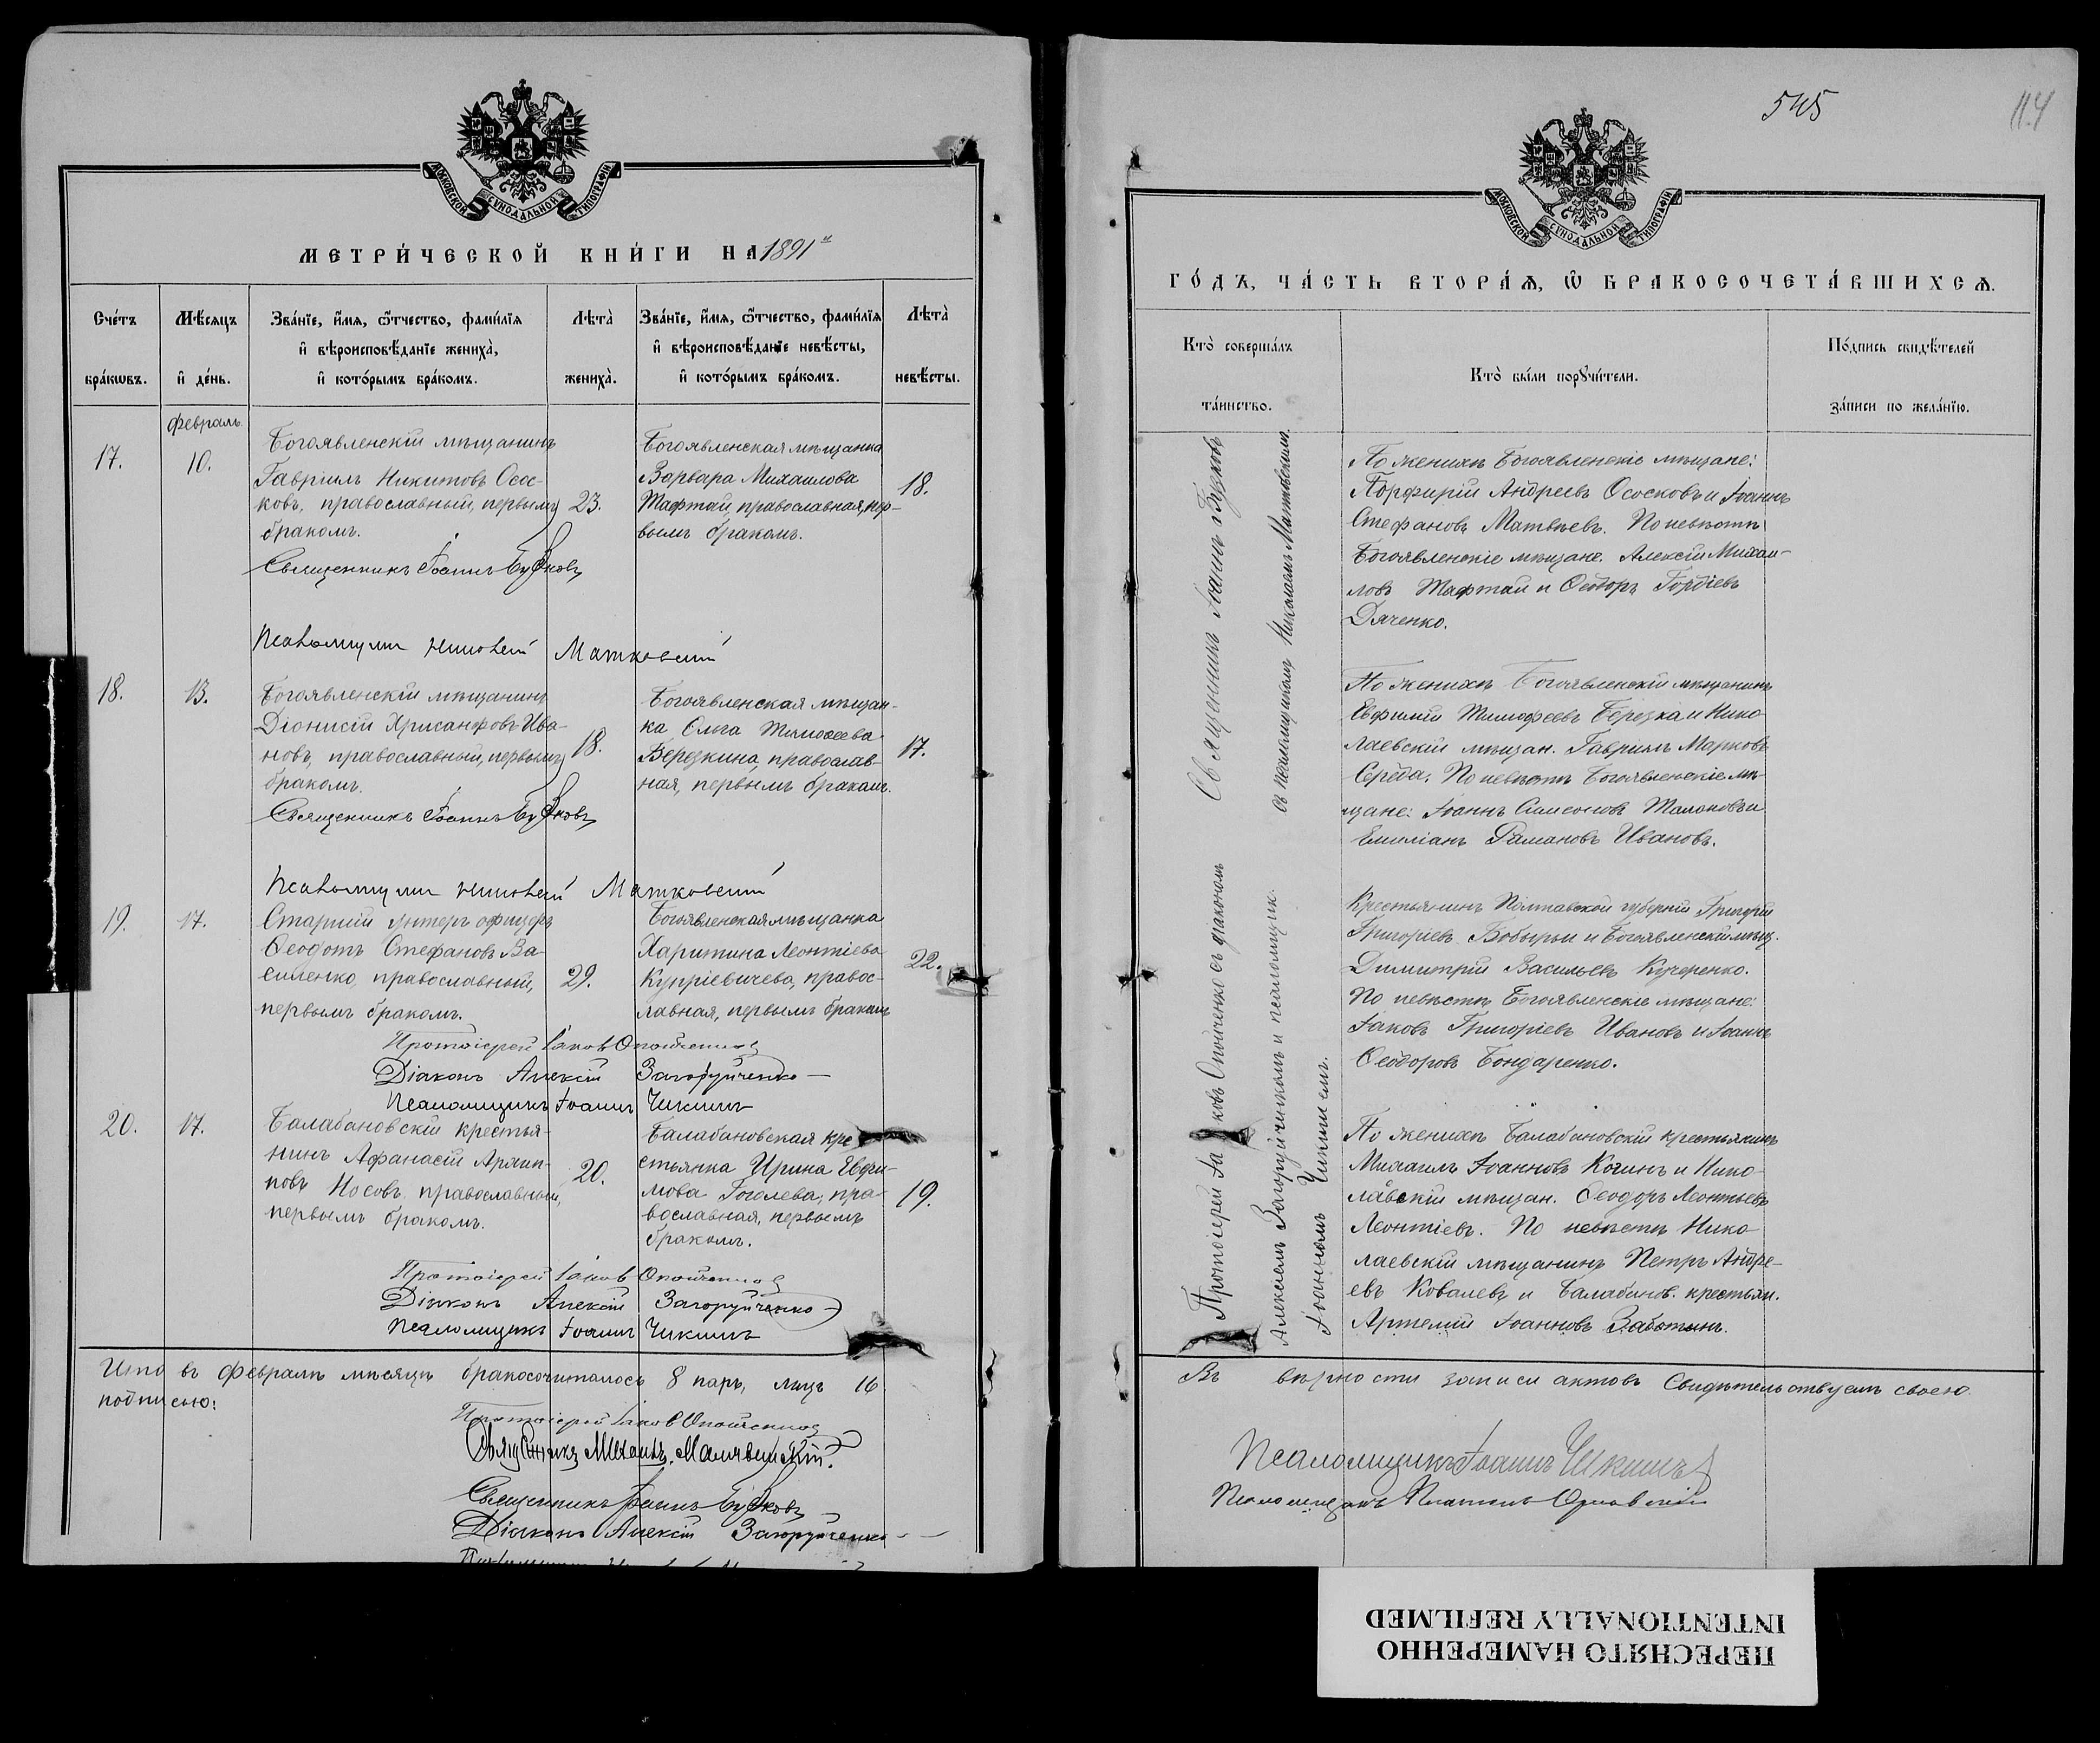 МОСКОВСКОЙ СѴНОДАЛЬНОЙ ТИПОГРАФІИ
МЕТРИ́ЧЕСКОЙ КНИ́ГИ НА 1891й
Сче́тъ бра́кѡвъ.
Мѣ́сяцъ и҆ де́нь.
Зва́нїе, и҆́мѧ, ѻ҆́тчество, фами́лїѧ
и҆ вѣроисповѣ́данїе жениха̀,
и҆ кото́рымъ бра́комъ.
Лѣта̀ жениха̀.
Зва́нїе, и҆́мѧ, ѻ҆́тчество, фами́лїѧ
и҆ вѣроисповѣ́данїе невѣ́сты,
и҆ кото́рымъ бра́комъ.
Лѣта̀ невѣ́сты.
Февраль.
17.
10.
Богоявленскій мѣщанинъ
Гавріилъ Никитовъ Осос-
ковъ, православный, первымъ
бракомъ.
23.
Богоявленская мѣщанка
Варвара Михаилова
Тафтай, православная, пер-
вымъ бракомъ.
18.
Священникъ Іоаннъ
Матковскій
18.
13.
Богоявленскій мѣщанинъ
Діонисій Хрисанфовъ Ива-
новъ, православный, первымъ
бракомъ.
18.
Богоявленская мѣщан-
ка Ольга Тимоѳеева
Березкина, православ-
ная, первымъ бракомъ.
17.
Священникъ Іоаннъ
Матковскій
19.
17.
Старшій унтеръ офицеръ
Ѳеодотъ Стефановъ Ва-
силенко, православный,
первымъ бракомъ.
29.
Богоявленская мѣщанка
Харитина Леонтіева
Купріевичева, правос-
лавная, первымъ бракомъ
22.
Протоіерей Іаковъ Опойченко
Діаконъ Алексій Загоруйченко
Псаломщикъ Іоаннъ Чикинъ
20.
17.
Балабановскій крестья-
нинъ Афанасій Архип-
повъ Носовъ, православный,
первымъ бракомъ.
20.
Балабановская кре-
стьянка Ирина Евфи-
мова Гоголева, пра-
вославная, первымъ
бракомъ.
19.
Протоіерей Іаковъ Опойченко
Діаконъ Алексій Загоруйченко
Псаломщикъ Іоаннъ Чикинъ
Итого въ февралѣ мѣсяцѣ бракосочиталось 8 паръ, лицъ 16.
подписью:
Протоіерей Іаковъ Опойченко
Священникъ Михаилъ
Священникъ Іоаннъ
Діаконъ Алексій Загоруйченко
545
114
МОСКОВСКОЙ СѴНОДАЛЬНОЙ ТИПОГРАФІИ
ГО́ДЪ, ЧА́СТЬ ВТОРА́Ѧ, Ѽ БРАКОСОЧЕТА́ВШИХСѦ.
Кто̀ соверша́лъ та́инство.
Кто̀ бы́ли порꙋчи́тели.
По́дпись свидѣ́телей за́писи по жела́нїю.
Священникъ Іоаннъ
съ псаломщикомъ Николаемъ Матковскимъ.
Протоіерей Іаковъ Опойченко съ діакономъ
Алексіемъ Загоруйченкомъ и псаломщик.
Іоанномъ Чикинымъ.
По женихѣ Богоявленскіе мѣщане:
Порфирій Андреевъ Ососковъ и Іоаннъ
Стефановъ Матвѣевъ. По невѣстѣ
Богоявленскіе мѣщане. Алексій Михаи-
ловъ Тафтай и Ѳеодоръ Гордіевъ
Дяченко.
По женихѣ Богоявленскій мѣщанинъ
Евфимій Тимофеевъ Березка и Нико-
лаевскій мѣщан. Гавріилъ Марковъ
Середа. По невѣстѣ Богоявленскіе мѣ-
щане: Іоаннъ Самсоновъ и
Емиліанъ Рамановъ Ивановъ.
Крестьянинъ Полтавской губерніи Григорій
Григоріевъ Бобырьи и Богоявленскій мѣщ.
Димитрій Васильевъ Кучеренко.
По невѣстѣ Богоявленскіе мѣщане:
Іаковъ Григоріевъ Ивановъ и Іоаннъ
Ѳеодоровъ Бондаренко.
По женихѣ Балабановскій крестьянинъ
Михаилъ Іоанновъ Когинъ и Нико-
лаевскій мѣщан. Ѳеодоръ Леонтьевъ
Леонтіевъ. По невѣстѣ Нико-
лаевскій мѣщанинъ Петръ Андре-
евъ Ковалевъ и Балабанов. крестьян.
Артемій Іоанновъ Заботинъ.
Въ вѣрности записи актовъ свидѣтельствуемъ своею
Псаломщикъ Іоаннъ Чикинъ
Псаломщикъ Платонъ Орловскій
ПЕРЕСНЯТО НАМЕРЕННО
INTENTIONALLY REFILMED